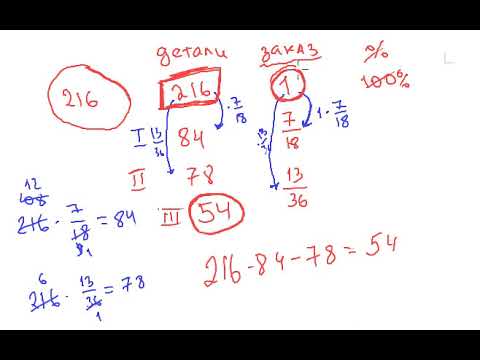 детали заказ %
216 216 1 100%
· 7/18 1 · 7/18
I 13/36 84 7/18
II 78 13/36
III 54
12
108
216 · 7/18 = 84
9 1
6
216 · 13/36 = 78
1
216 - 84 - 78 = 54